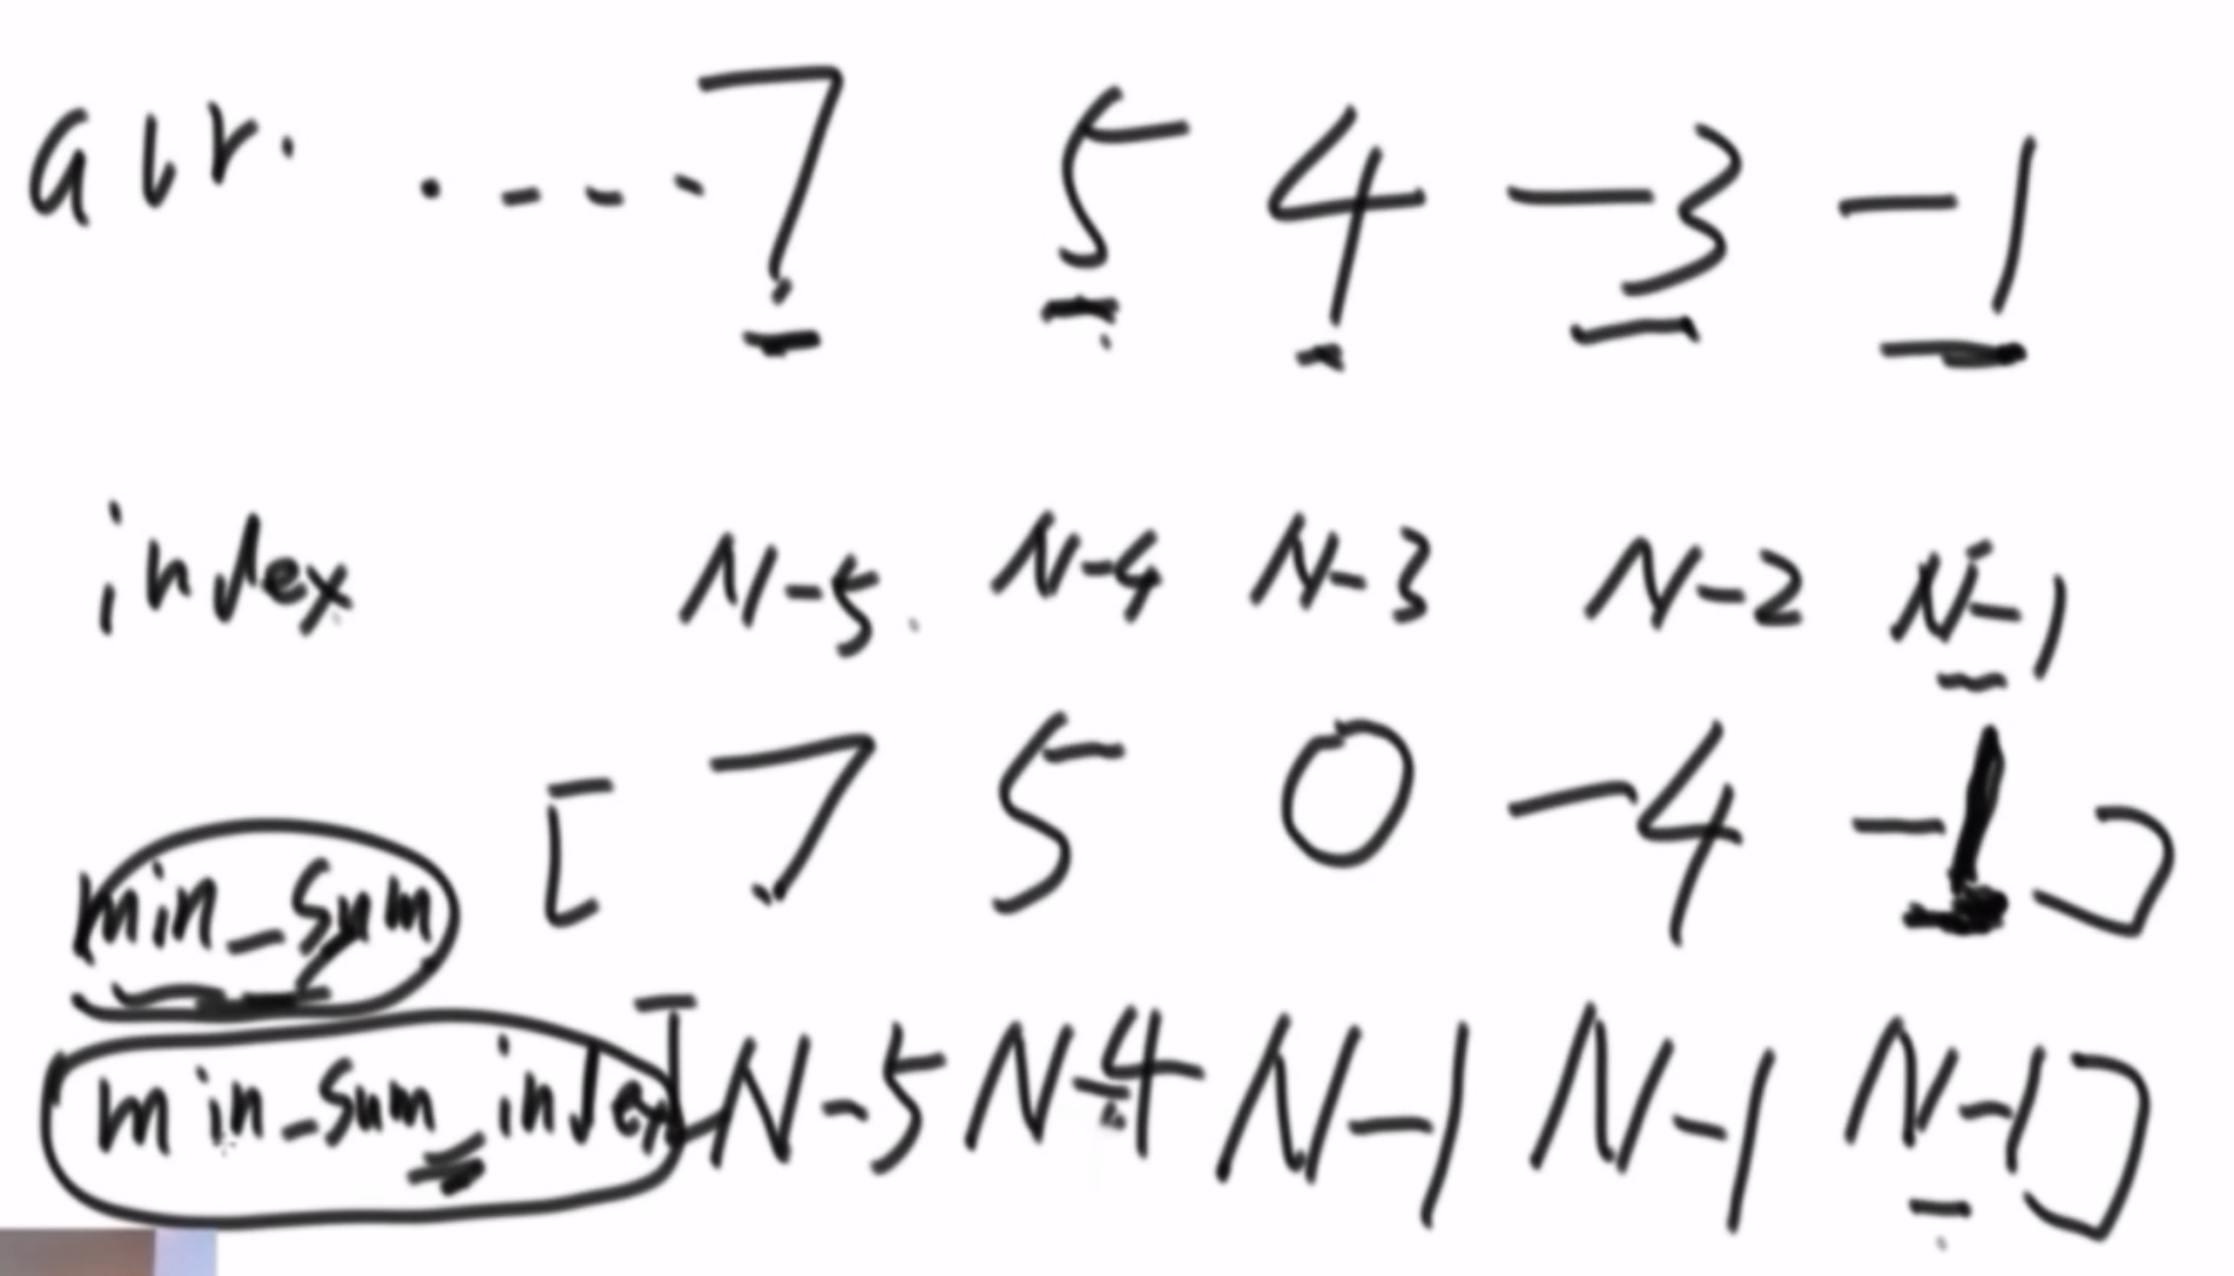 arr. .... 7 5 4 -3 -1
index N-5 N-4 N-3 N-2 N-1
min_sum [ 7 5 0 -4 -1 ]
min_sum_index [ N-5 N-4 N-1 N-1 N-1 ]